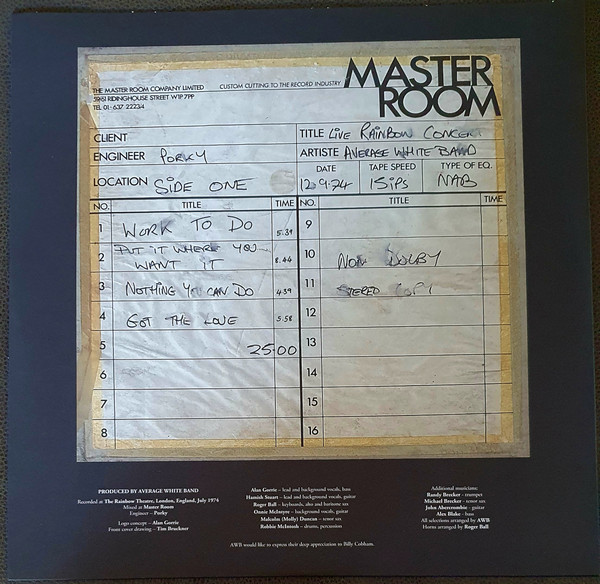 MASTER
ROOM
THE MASTER ROOM COMPANY LIMITED
CUSTOM CUTTING TO THE RECORD INDUSTRY
59/61 RIDINGHOUSE STREET W1P 7PP
TEL 01-637 2223/4
CLIENT
TITLE LIVE RAINBOW CONCERT
ENGINEER PORKY
ARTISTE AVERAGE WHITE BAND
LOCATION SIDE ONE
DATE TAPE SPEED TYPE OF EQ.
12.9.74 15ips NAB
NO. TITLE TIME NO. TITLE TIME
1 WORK TO DO 5.39
2 PUT IT WHERE YOU
WANT IT 8.44
3 NOTHING YOU CAN DO 4.39
4 GOT THE LOVE 5.58
5 25.00
6
7
8
9
10 NON DOLBY
11 STEREO COPY
12
13
14
15
16
PRODUCED BY AVERAGE WHITE BAND
Recorded at The Rainbow Theatre, London, England, July 1974
Mixed at Master Room
Engineer – Porky
Logo concept – Alan Gorrie
Front cover drawing – Tim Bruckner
Alan Gorrie – lead and background vocals, bass
Hamish Stuart – lead and background vocals, guitar
Roger Ball – keyboards, alto and baritone sax
Onnie McIntyre – background vocals, guitar
Malcolm (Molly) Duncan – tenor sax
Robbie McIntosh – drums, percussion
Additional musicians:
Randy Brecker – trumpet
Michael Brecker – tenor sax
John Abercrombie – guitar
Alex Blake – bass
All selections arranged by AWB
Horns arranged by Roger Ball
AWB would like to express their deep appreciation to Billy Cobham.